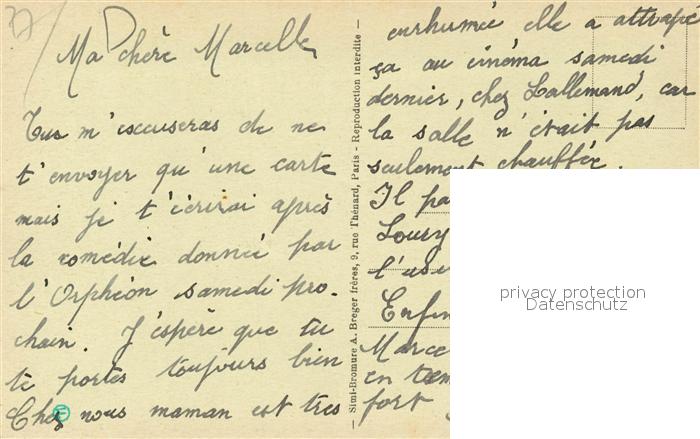 Ma chère Marcelle
Tu m'excuseras de ne
t'envoyer qu'une carte
mais je t'écrirai après
la comédie donnée par
l'Orphéon samedi pro-
chain. J'espère que tu
te portes toujours bien
Chez nous maman est très
Simi-Bromure A. Breger frères, 9, rue Thénard, Paris - Reproduction interdite
enrhumée elle a attrapé
ça au cinéma samedi
dernier, chez Lallemand, car
la salle n'était pas
seulement chauffée.
Il pa
Loury
l'use
Enfin
Marce
en tem
fort
privacy protection
Datenschutz